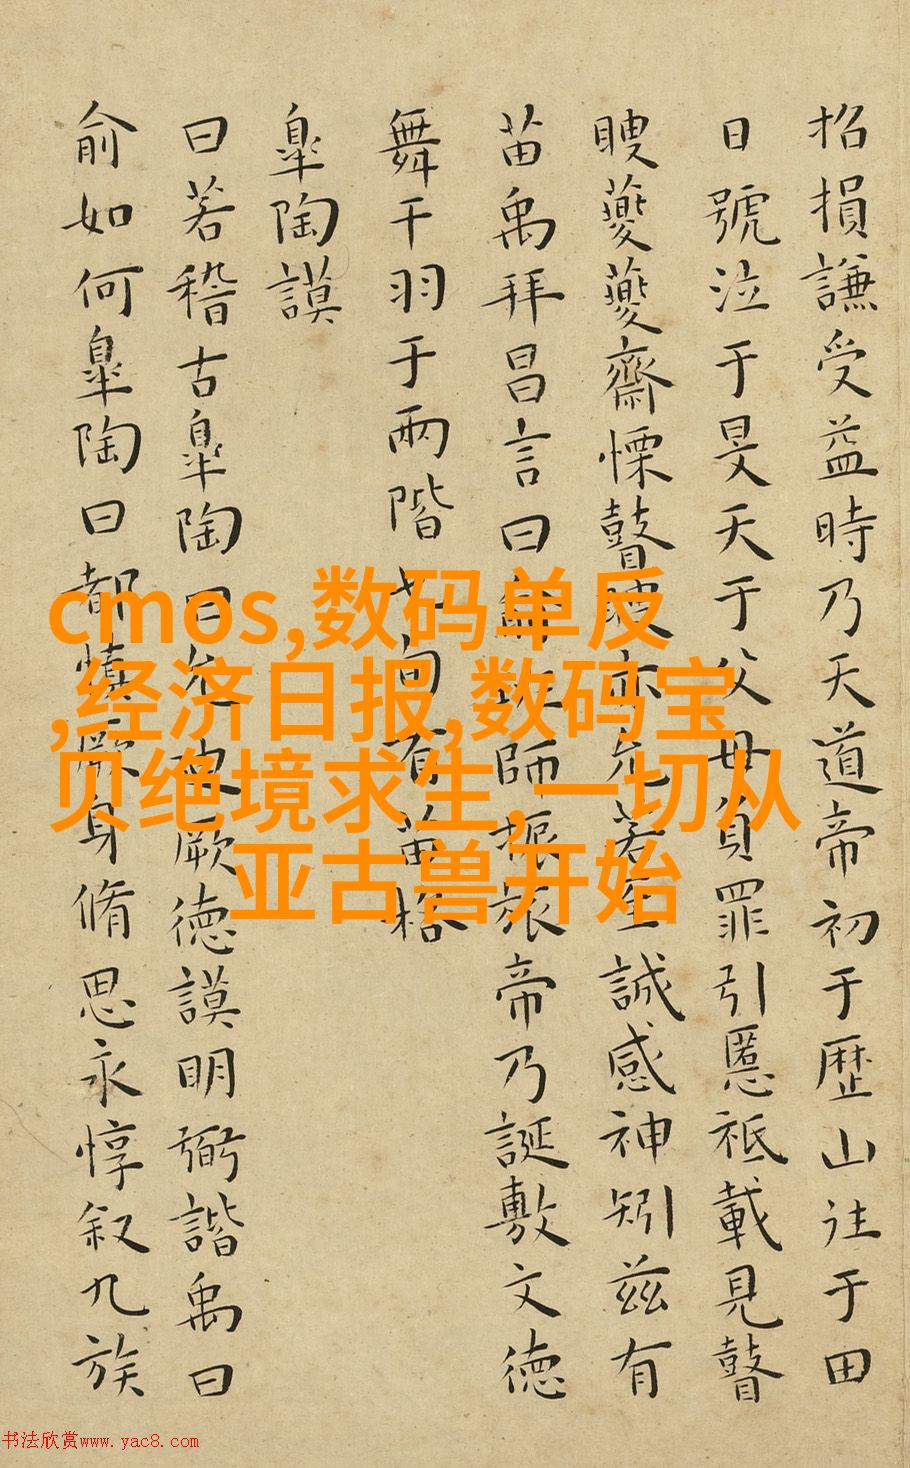 招損謙受益時乃天道帝初于歴山往于田
日號泣于旻天于父母負罪引慝祗載見瞽
瞍夔夔齋慄瞽瞍亦允若至誠感神矧茲有
苗禹拜昌言曰俞班師振旅帝乃誕敷文德
舞干羽于兩階七旬有苗格
皐陶謨
曰若稽古皐陶曰允迪厥德謨明弼諧禹曰
俞如何皐陶曰都慎厥身脩思永惇叙九族
cmos,数码单反
,经济日报,数码宝
贝绝境求生,一切从
亚古兽开始
书法欣赏www.yac8.com